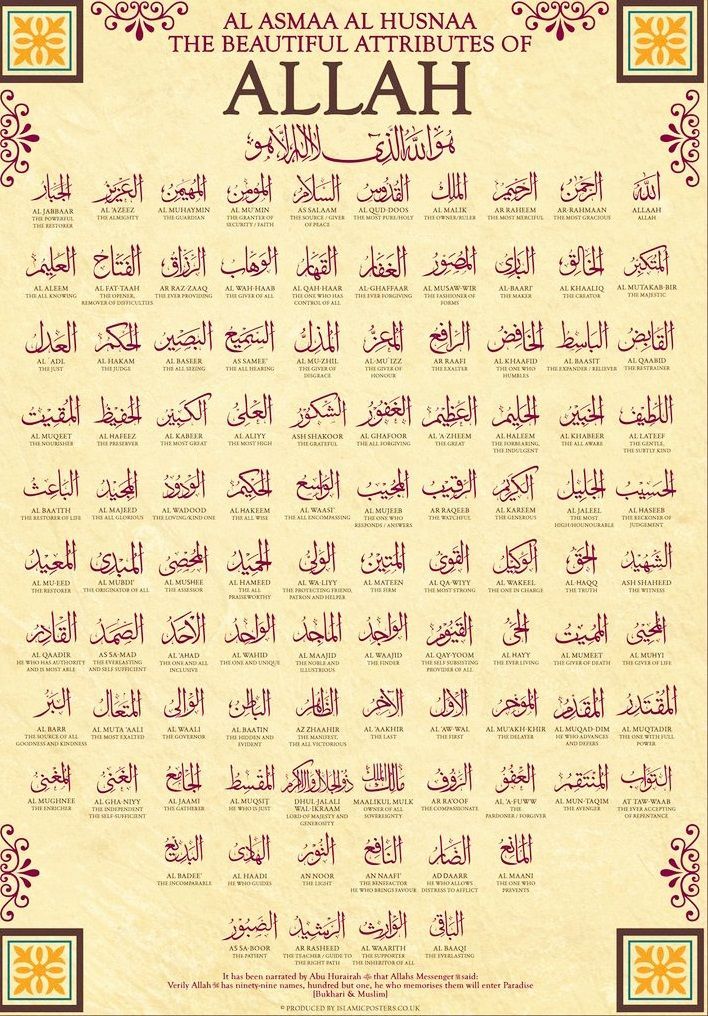 AL ASMAA AL HUSNAA
THE BEAUTIFUL ATTRIBUTES OF
ALLAH
هو الله الذي لا إله إلا هو
الله الرحمن الرحيم الملك القدوس السلام المؤمن المهيمن العزيز الجبار
AL JABBAAR AL 'AZEEZ AL MUHAYMIN AL MU'MIN AS SALAAM AL QUD-DOOS AL MALIK AR RAHEEM AR-RAHMAAN ALLAAH
THE POWERFUL THE ALMIGHTY THE GUARDIAN THE GRANTER OF THE SOURCE / GIVER THE MOST PURE/HOLY THE OWNER/RULER THE MOST MERCIFUL THE MOST GRACIOUS ALLAH
THE RESTORER SECURITY / FAITH OF PEACE
المتكبر الخالق البارئ المصور الغفار القهار الوهاب الرزاق الفتاح العليم
AL ALEEM AL FAT-TAAH AR RAZ-ZAAQ AL WAH-HAAB AL QAH-HAAR AL-GHAFFAAR AL MUSAW-WIR AL-BAARI' AL KHAALIQ AL MUTAKAB-BIR
THE ALL KNOWING THE OPENER, THE EVER PROVIDING THE GIVER OF ALL THE ONE WHO HAS THE EVER FORGIVING THE FASHIONER OF THE MAKER THE CREATOR THE MAJESTIC
REMOVER OF DIFFICULTIES CONTROL OF ALL FORMS
القابض الباسط الخافض الرافع المعز المذل السميع البصير الحكم العدل
AL 'ADL AL HAKAM AL BASEER AS SAMEE' AL MU-ZHIL AL-MU'IZZ AR RAAFI AL KHAAFID AL BAASIT AL QAABID
THE JUST THE JUDGE THE ALL SEEING THE ALL HEARING THE GIVER OF THE GIVER OF THE EXALTER THE ONE WHO THE EXPANDER / RELIEVER THE RESTRAINER
DISGRACE HONOUR HUMBLES
اللطيف الخبير الحليم العظيم الغفور الشكور العلي الكبير الحفيظ المقيت
AL MUQEET AL HAFEEZ AL KABEER AL ALIYY ASH SHAKOOR AL GHAFOOR AL 'A'ZHEEM AL HALEEM AL KHABEER AL LATEEF
THE NOURISHER THE PRESERVER THE MOST GREAT THE MOST HIGH THE GRATEFUL THE ALL FORGIVING THE GREAT THE FORBEARING, THE ALL AWARE THE GENTLE,
THE INDULGENT THE SUBTLY KIND
الحسيب الجليل الكريم الرقيب المجيب الواسع الحكيم الودود المجيد الباعث
AL BAA'ITH AL MAJEED AL WADOOD AL HAKEEM AL WAASI' AL MUJEEB AR RAQEEB AL KAREEM AL JALEEL AL HASEEB
THE RESTORER OF LIFE THE ALL GLORIOUS THE LOVING/KIND ONE THE ALL WISE THE ALL ENCOMPASSING THE ONE WHO THE WATCHFUL THE GENEROUS THE MOST THE RECKONER OF
RESPONDS / ANSWERS HIGH/HOUNOURABLE JUDGEMENT
الشهيد الحق الوكيل القوي المتين الولي الحميد المحصي المبدئ المعيد
AL MU-EED AL MUBDI' AL MUSHEE AL HAMEED AL WA-LIYY AL MATEEN AL QA-WIYY AL WAKEEL AL-HAQQ ASH SHAHEED
THE RESTORER THE ORIGINATOR OF ALL THE ASSESSOR THE ALL THE PROTECTING FRIEND, THE FIRM THE MOST STRONG THE ONE IN CHARGE THE TRUTH THE WITNESS
PRAISEWORTHY PATRON AND HELPER
المحيي المميت الحي القيوم الواجد الماجد الواحد الأحد الصمد القادر
AL QAADIR AS SA-MAD AL 'AHAD AL WAHID AL MAAJID AL WAAJID AL QAY-YOOM AL HAYY AL MUMEET AL MUHYI
HE WHO HAS AUTHORITY THE EVERLASTING THE ONE AND ALL THE ONE AND UNIQUE THE NOBLE AND THE FINDER THE SELF SUBSISTING THE EVER LIVING THE GIVER OF DEATH THE GIVER OF LIFE
AND IS MOST ABLE AND SELF SUFFICIENT INCLUSIVE ILLUSTRIOUS PROVIDER OF ALL
المقتدر المقدم المؤخر الأول الآخر الظاهر الباطن الوالي المتعال البر
AL BARR AL MUTA 'AALI AL WAALI AL BAATIN AZ ZAAHIR AL 'AAKHIR AL 'AW-WAL AL MU'AKH-KHIR AL MUQAD-DIM AL MUQTADIR
THE SOURCE OF ALL THE MOST EXALTED THE GOVERNOR THE HIDDEN AND THE MANIFEST, THE LAST THE FIRST THE DELAYER HE WHO ADVANCES THE ONE WITH FULL
GOODNESS AND KINDNESS EVIDENT THE ALL VICTORIOUS AND DEFERS POWER
التواب المنتقم العفو الرؤوف مالك الملك ذو الجلال والإكرام المقسط الجامع الغني المغني
AL MUGHNEE AL GHA-NIYY AL JAAMI AL MUQSIT DHUL-JALALI MAALIKUL MULK AR RA'OOF AL 'A-FUWW AL MUN-TAQIM AT TAW-WAAB
WAL-IKRAAM
THE ENRICHER THE INDEPENDENT THE GATHERER HE WHO IS JUST LORD OF MAJESTY AND OWNER OF ALL THE COMPASSIONATE THE THE AVENGER THE EVER ACCEPTING
THE SELF-SUFFICIENT GENEROSITY SOVEREIGNTY PARDONER / FORGIVER OF REPENTANCE
المانع الضار النافع النور الهادي البديع
AL BADEE' AL HAADI AN NOOR AN NAAFI' AD DAARR AL MAANI
THE INCOMPARABLE HE WHO GUIDES THE LIGHT THE BENEFACTOR HE WHO ALLOWS THE ONE WHO
HE WHO BRINGS FAVOUR DISTRESS TO AFFLICT PREVENTS
الباقي الوارث الرشيد الصبور
AS SA-BOOR AR RASHEED AL WAARITH AL BAAQI
THE PATIENT THE TEACHER / GUIDE TO THE SUPPORTER THE EVERLASTING
THE RIGHT PATH THE INHERITOR OF ALL
It has been narrated by Abu Hurairah that Allahs Messenger ﷺ said:
Verily Allah has ninety-nine names, hundred but one, he who memorises them will enter Paradise
[Bukhari & Muslim]
© PRODUCED BY ISLAMICPOSTERS.CO.UK